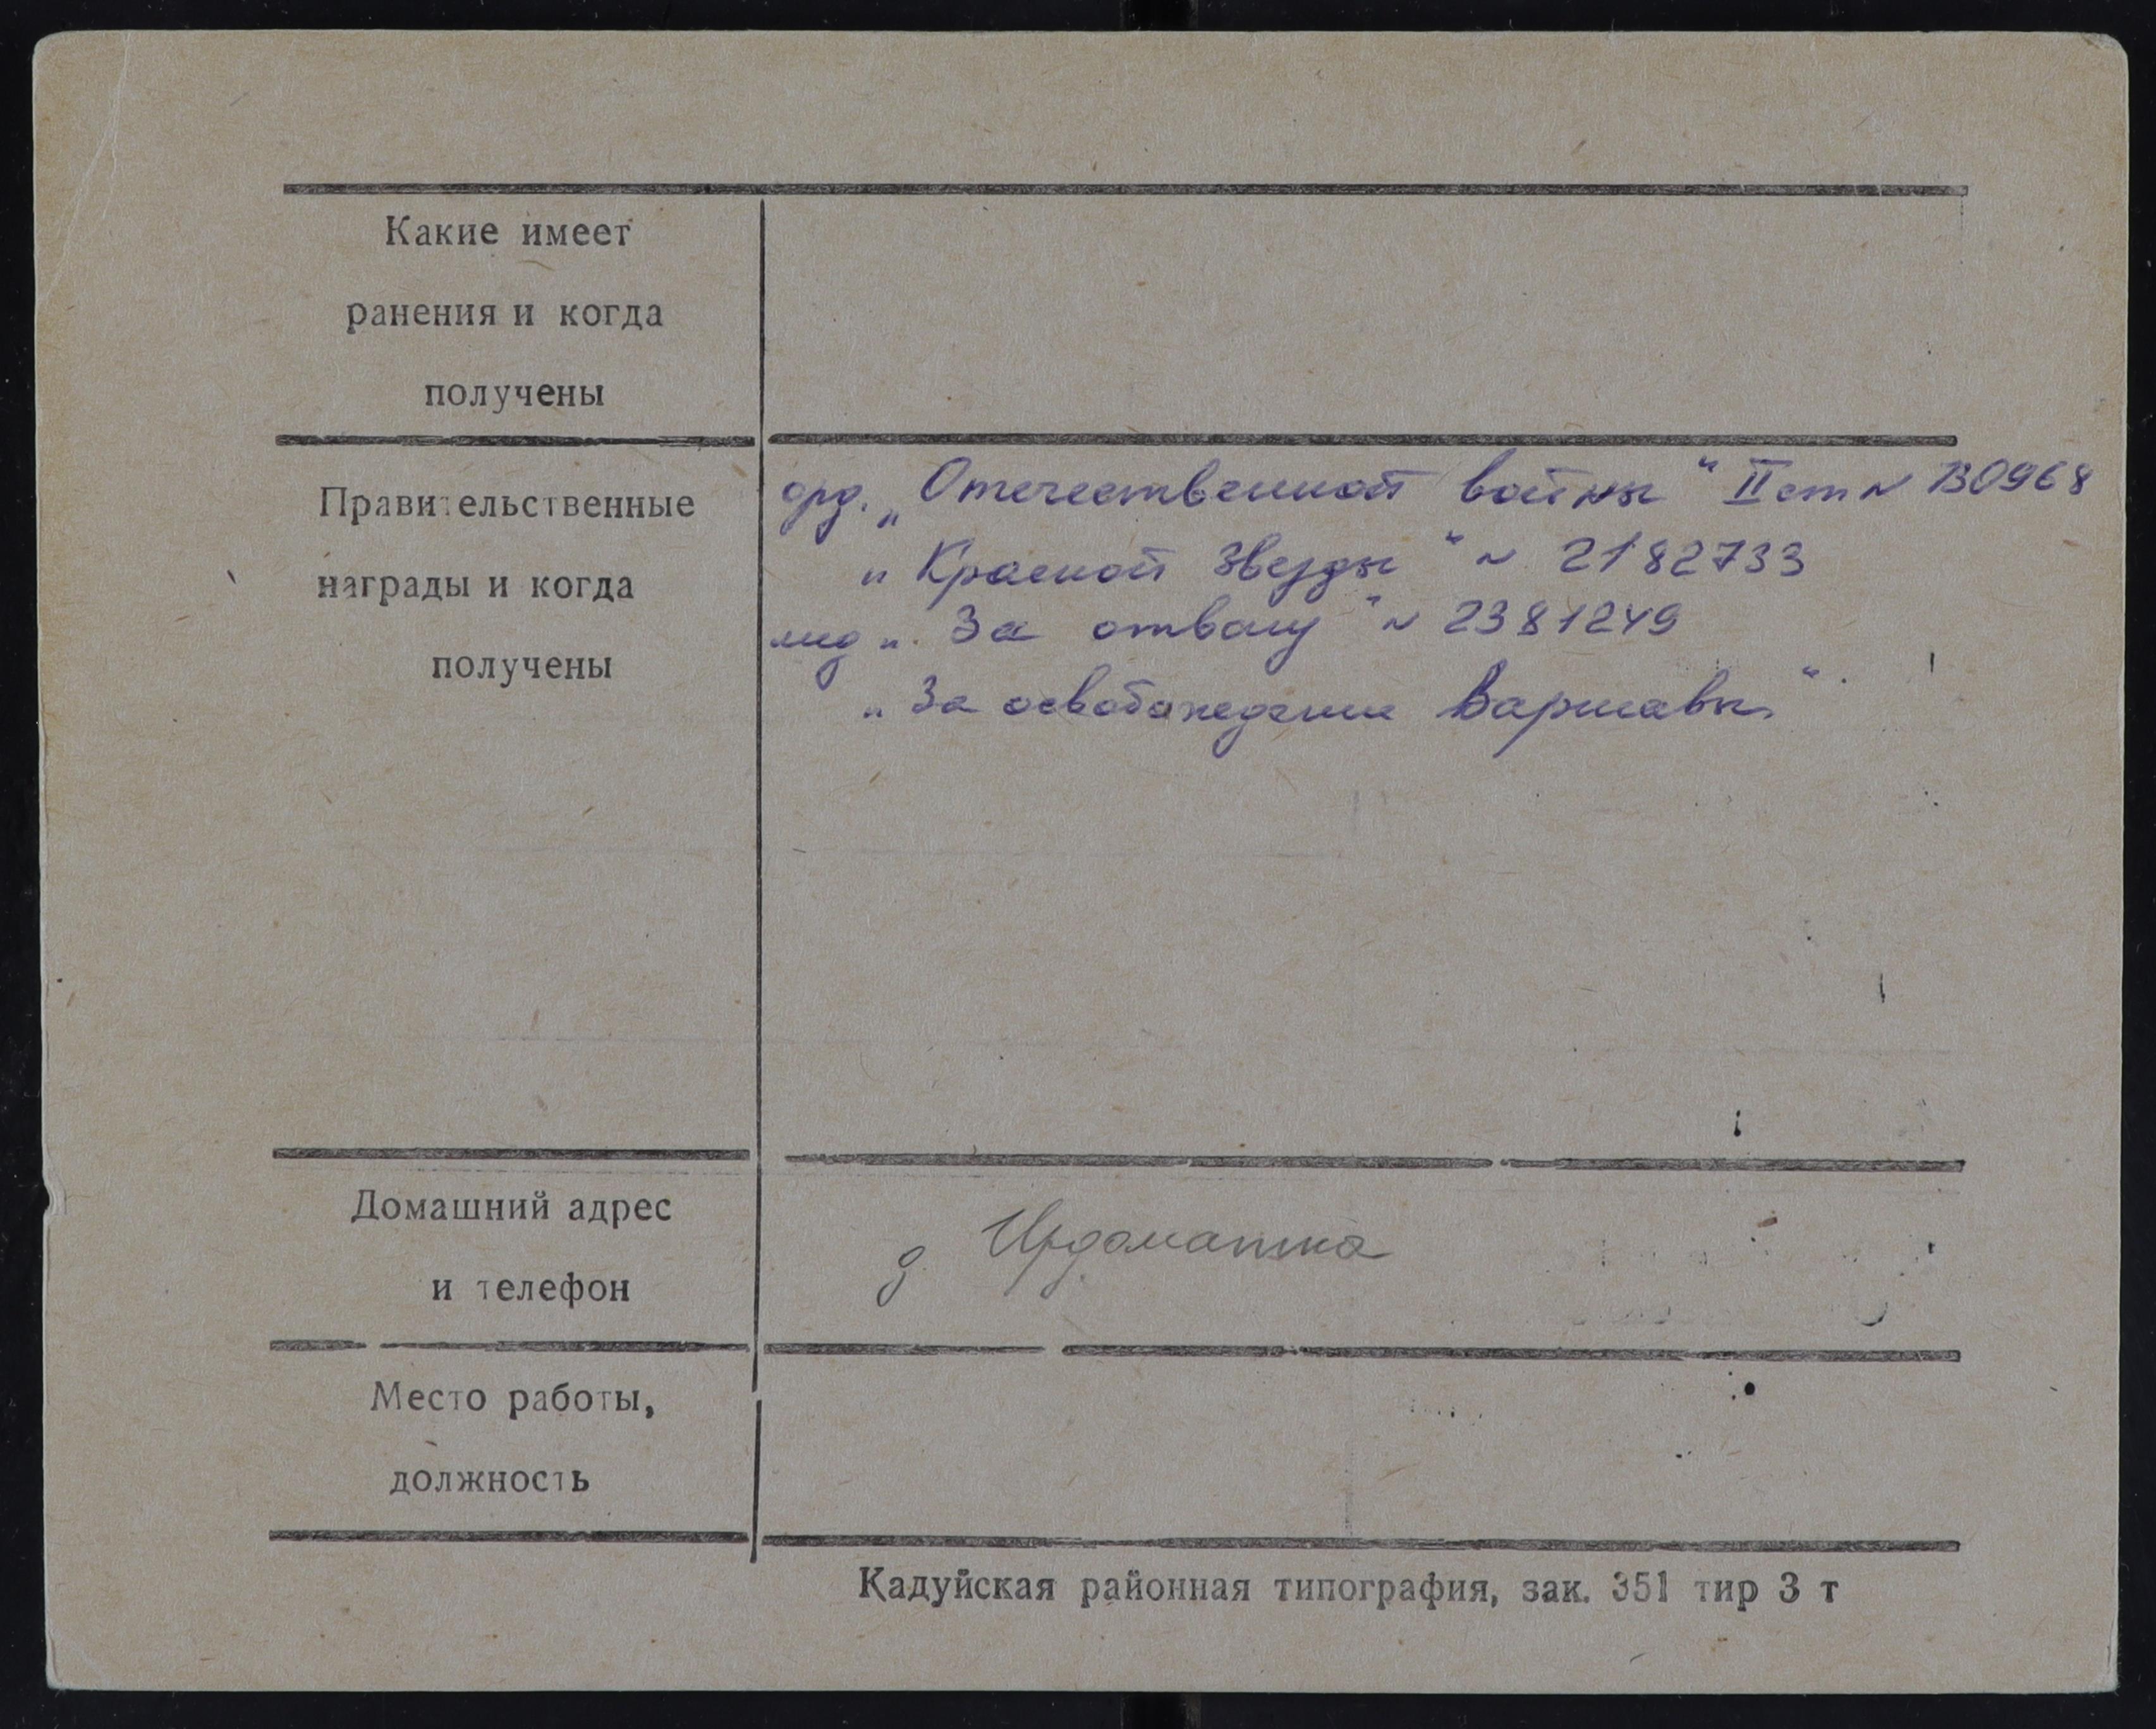 Какие имеет
ранения и когда
получены
Правительственные
награды и когда
получены
орд. „Отечественной войны“ II ст № 130968
„Красной Звезды“ № 2182733
мед „За отвагу“ № 2381249
„За освобождение Варшавы“.
Домашний адрес
и телефон
д. Ирдоматка
Место работы,
должность
Кадуйская районная типография, зак. 351 тир 3 т